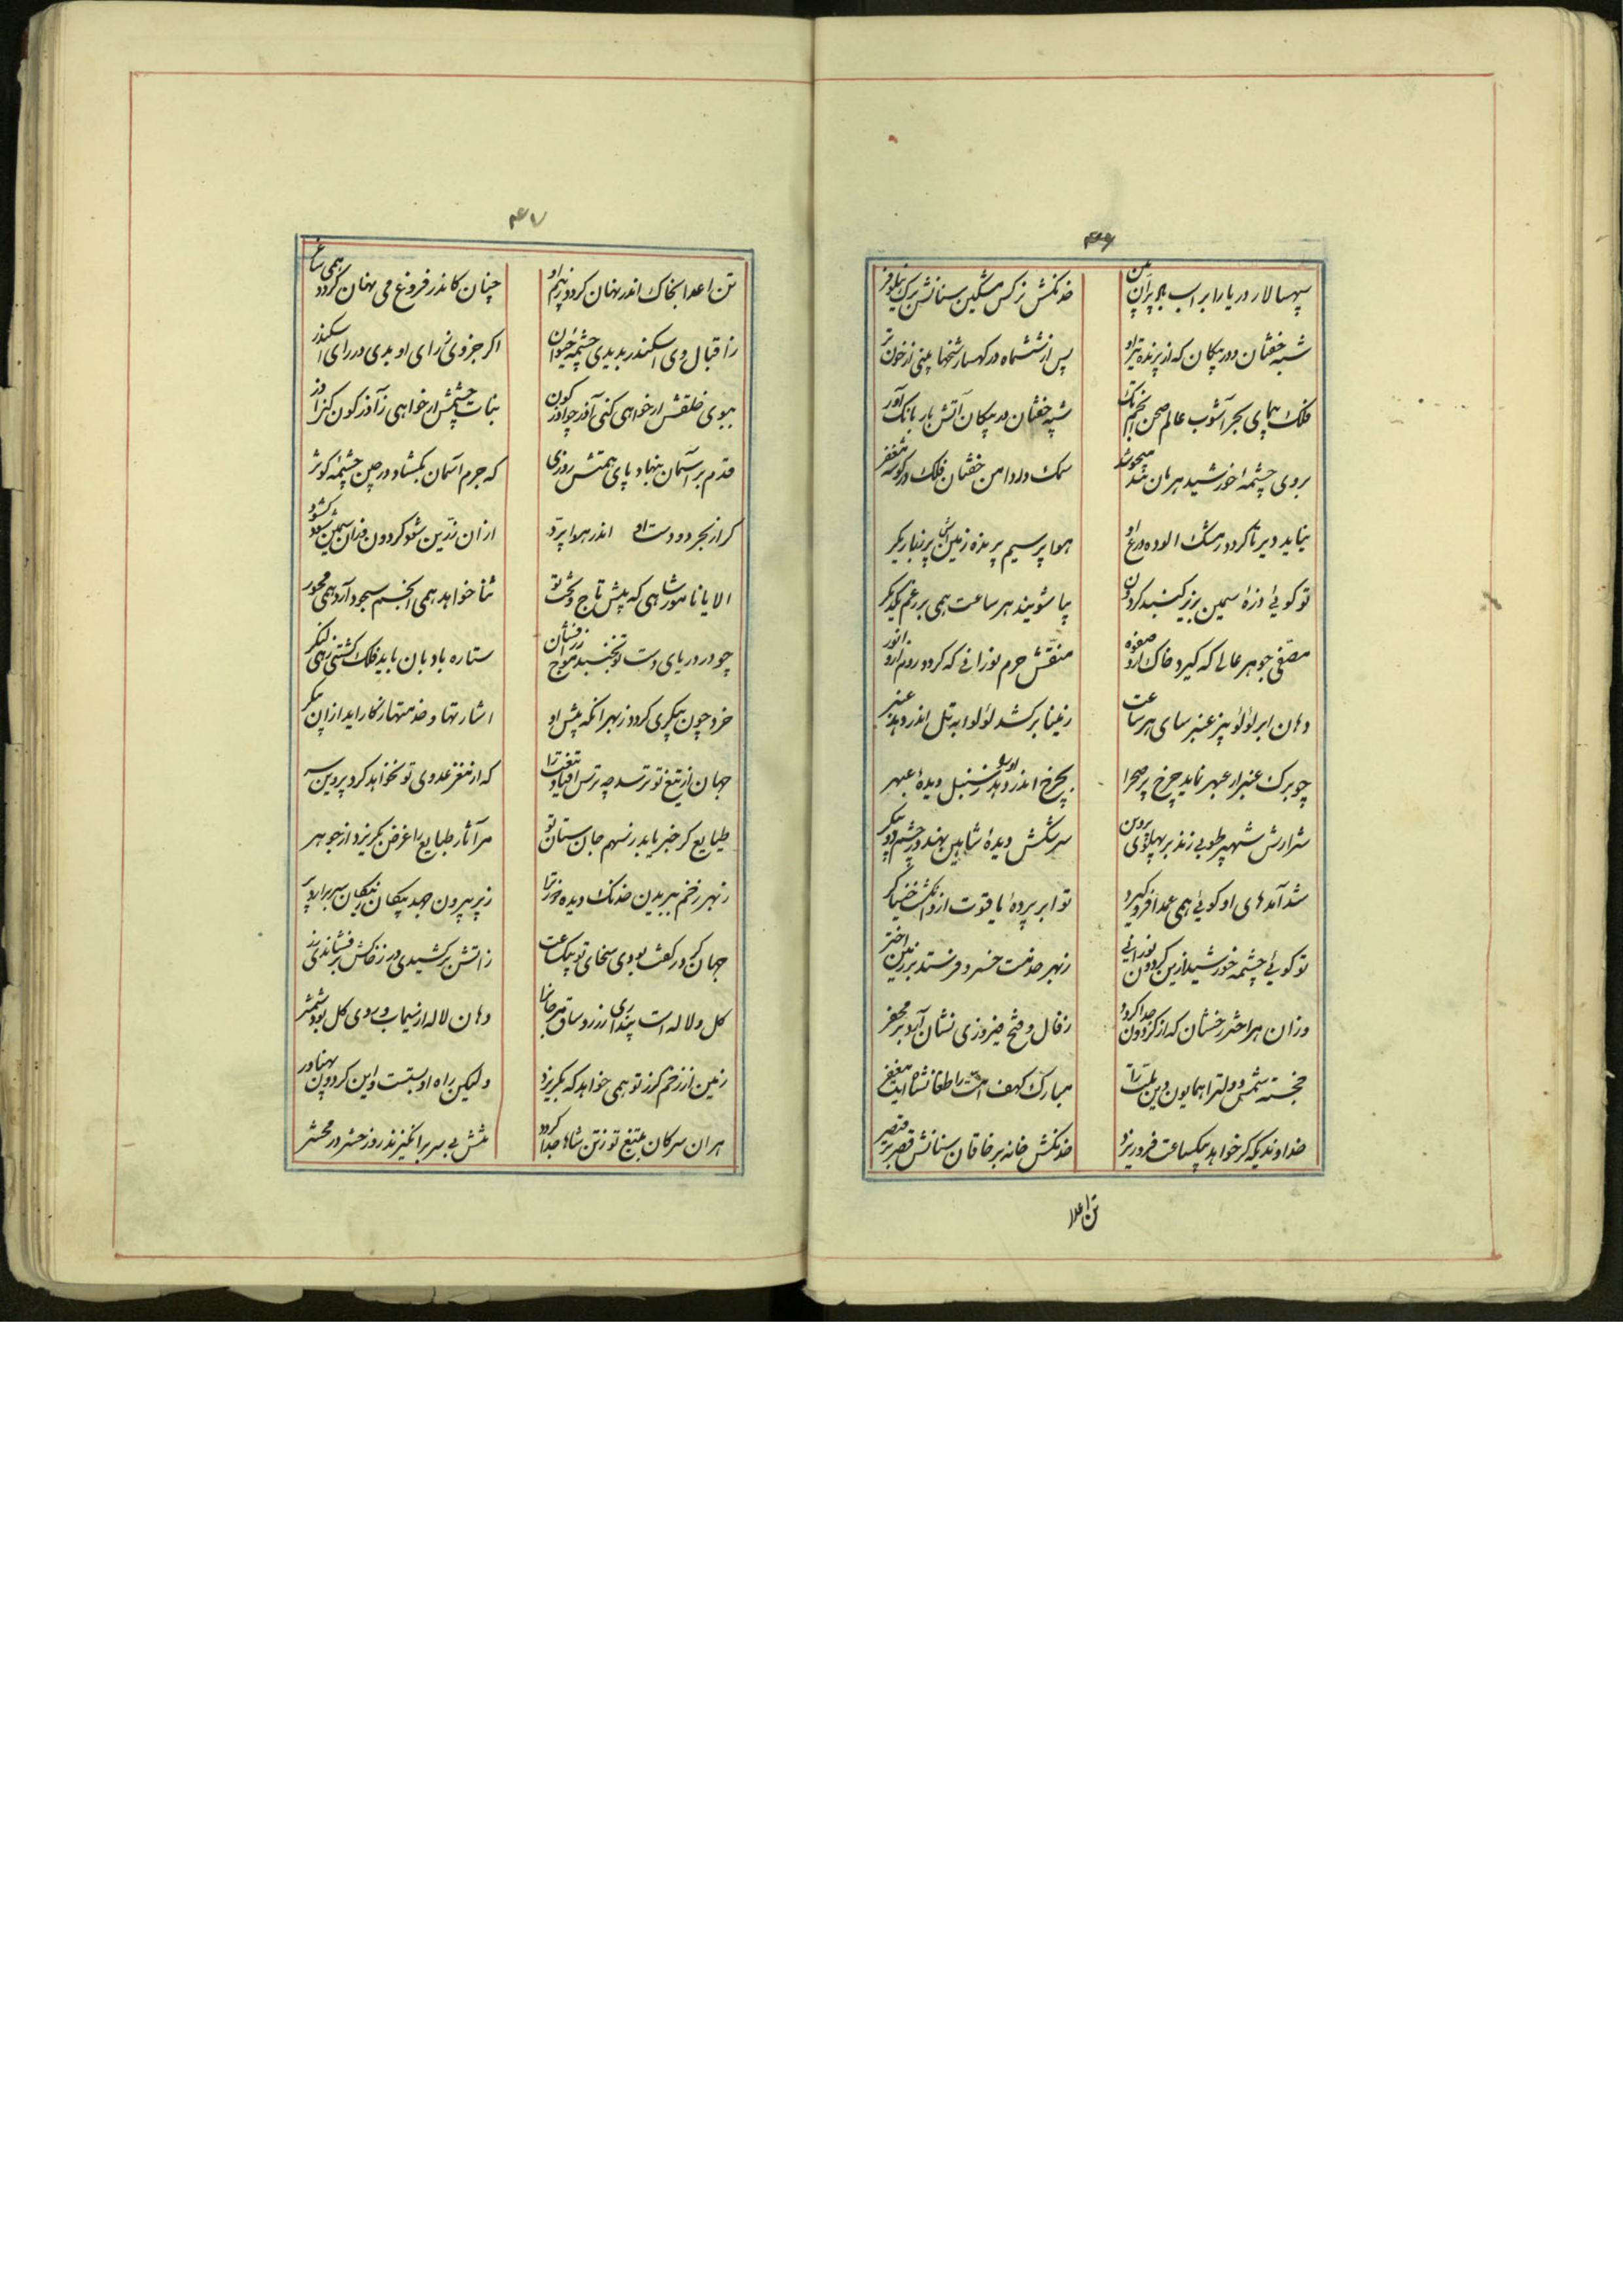 ۴۶
سپهسالار دریا را بر اسب پیل بران خدنگش نرگس مشکین سنانش برگ نیلوفر
شبه خفتان و در پیکان که از پرنده تیر او پس از ششماه در کهسار شخها بینی از خون تر
فلک پیمای بحر آشوب عالم صحن انجم تک شبه خفتان در پیکان آتش بار بانک آور
بروی چشمهٔ خورشید هر مان بند سمک دارد امن خفتان فلک در گوشه مغفر
نیاید دیر تا کردد زمشک الوده درع او هوا پر سیم پر بذه زمین پر نبار یکر
تو کوئی وزهٔ سیمین بزیر کنبد کردون بپا شویند هر ساعت همی بر رغم یکدیکر
مصفی جوهر عالی که کیرد خاک ازو صفوه منقش جرم نورانی که کردد روم ازو انور
دهان ابر لؤلؤ بیز عنبر سای هر ساعت ز مینا برکشد لؤلؤ به تل اندر دهد عنبر
چو برک عنبر از عبهر نماید چرخ پر صحرا بچرخ اندر دهد سنبل دیدهٔ عبهر
شرارش شهپر طوبی زند بر پهلوی پروین سرشکش دیدهٔ شاهین نهد در چشم دو پیکر
شد آمدهای او کوئی همی عمدا فرو کیرد تو ابر پردهٔ یاقوت از انکشت خنیاکر
تو کوئی چشمه خورشید ازین کردون نورانی ز بهر خدمت خسرو فرستد بر زمین اختر
وزان هر اختر رخشان که از کردون جدا کردد ز فال و فتح فیروزی نشان آید بر محضر
خجسته شمس دولت را همایون زین ملت را مبارک کهف امت را طغانشاه ابن
خداوندیکه کر خواهد بیکساعت فرو ریزد خدنکش خانه بر خاقان سنانش قصر بر قیصر
تن اعدا
۴۷
تن اعدا بخاک اندر نهان کردد ز بیم او چنان کاندر فروغ می نهان کردد همی ساغر
ز اقبال وی اسکندر بدیدی چشمهٔ حیوان اکر جزوی ز رای او بدی در رای اسکندر
ببوی خلقش ار خواهی کنی آذر چو آذرکون بتاب چشمش ار خواهی ز آذرکون کنی آذر
قدم بر آسمان بنهاد پای همتش روزی که جرم آسمان بکشاد در حین چشمهٔ کوثر
کر از بحر دو دست او اندر هوا پرّد ازان زرّین شود کردون وزان سیمین شود کشور
الا یا نامور شاهی که پیش تاج و تخت تو ثنا خواهد همی انجم سجود آرد همی محور
چو در دریای دست تو بجنبد موج زرافشان ستاره بادبان باید فلک کشتی زمی لنکر
خرد چون پیکری کردد ز بهر آنکه پیش او اشارتها و خدمتها نکار آید ازان پیکر
جهان از تیغ تو ترسد چه ترس افتاد تیغت را که از مغز عدوی تو نخواهد کرد پروین سر
طبایع کر خبر یابد ز سهم جان ستان تو مر آثار طبایع را غرض بکریزد از جوهر
ز بهر زخم ببریدن خدنک دیده دوزت را ز پر بیرون جهد پیکان ز پیکان سر برارد پر
جهان کر در کفت بودی سخای تو بیک ساعت ز آتش برکشیدی در ز خاکش برفشاندی زر
کل و لاله است پنداری ز رو ساق بیرجان را دهان لاله از سیماب و روی کل بود شمشر
زمین از زخم کرز تو همی خواهد که بکریزد ولیکن راه او بستست و این کردون پهناور
هر ان سر کان بتیغ تو ز تن شاها جدا کردد تنش بی سر برانکیزند روز حشر در محشر